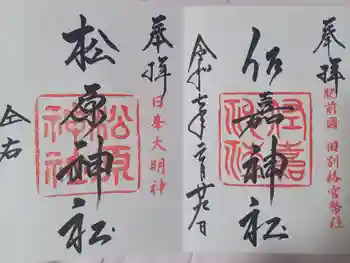 奉拝
肥前國 旧別格官幣社
佐嘉神社
佐嘉
神社
令和 年 月 日
奉拝
日峯大明神
松原神社
松原
神社
仝右